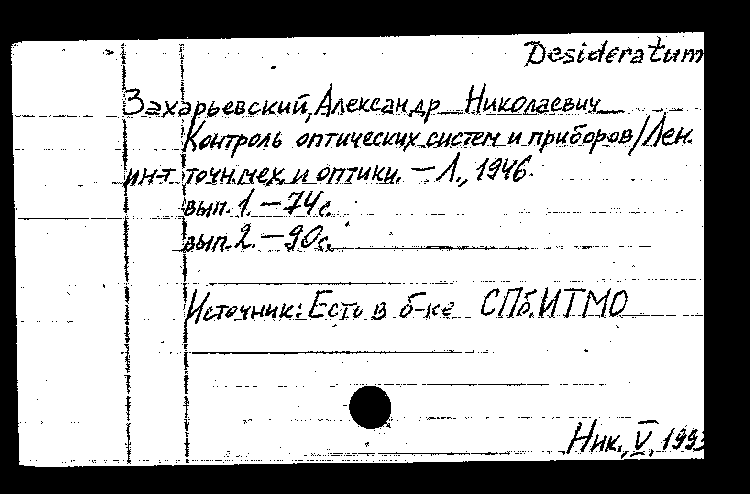 Desideratum
Захарьевский, Александр Николаевич
Контроль оптических систем и приборов/Лен.
ин-т точн.мех. и оптики. — Л., 1946.
вып. 1. — 74 с.
вып. 2. — 90 с.
Источник: Есть в б-ке СПб.ИТМО
Ник., V, 1993